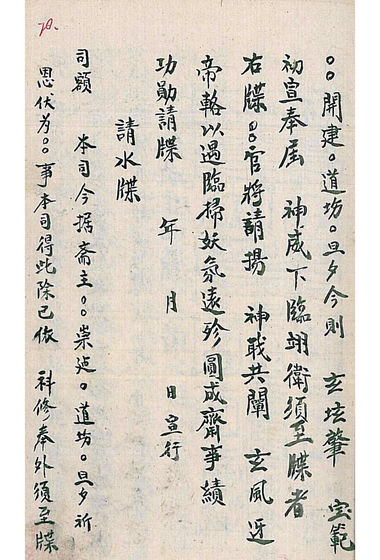 ○○開建○道坊○旦夕今則 玄坛肇 宝範
初宣奉屈 神威下臨翊衛須至牒者
右牒○○官將請揚 神戢共闡 玄風迓
帝輅以遇臨掃妖氛遠殄圓成齋事績
功勛請牒 年 月 日宣行
請水牒
司額 本司今据斋主○○崇建○道坊○旦夕祈
恩伏为○○事本司得此除已依 科修奉外須至牒